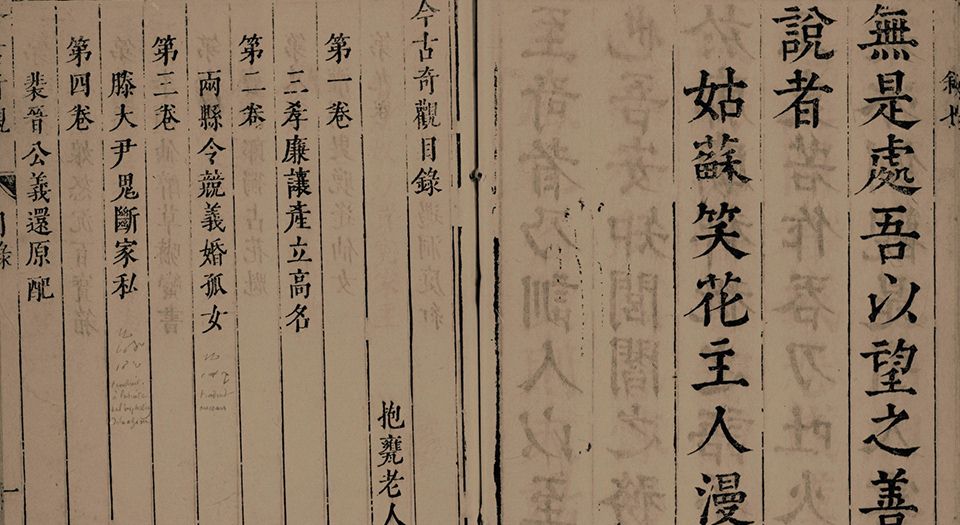 無是處吾以望之善
說者
姑蘇笑花主人漫
今古奇觀目錄
抱甕老人
第一卷
三孝廉讓產立高名
第二卷
兩縣令競義婚孤女
第三卷
滕大尹鬼斷家私
第四卷
裴晉公義還原配